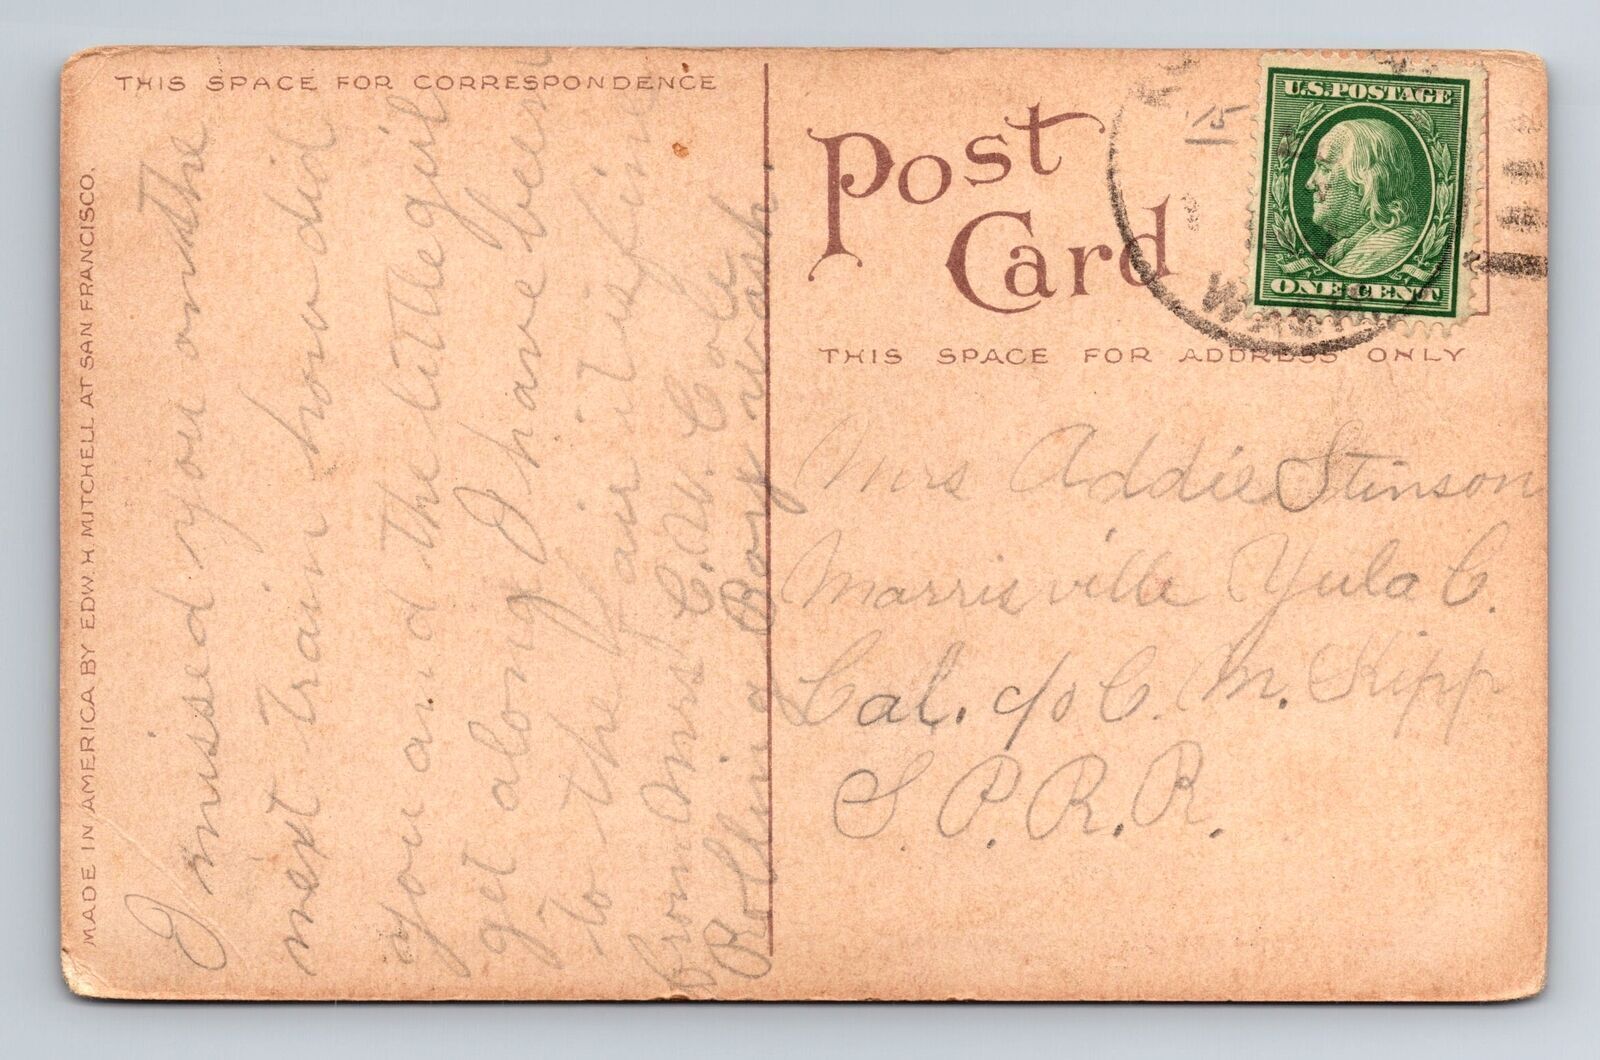 THIS SPACE FOR CORRESPONDENCE
MADE IN AMERICA BY EDW. H. MITCHELL AT SAN FRANCISCO.
I missed you on the
next train how did
you and the little girl
get along I have been
to the fair it is fine
from Mrs C. W. Coe
Rolling Bay Wash.
Post
Card
U.S. POSTAGE
ONE CENT
WASH
THIS SPACE FOR ADDRESS ONLY
Mrs Addie Stinson
Marrisville Yula C.
Cal. c/o C. M. Kipp
S. P. R. R.